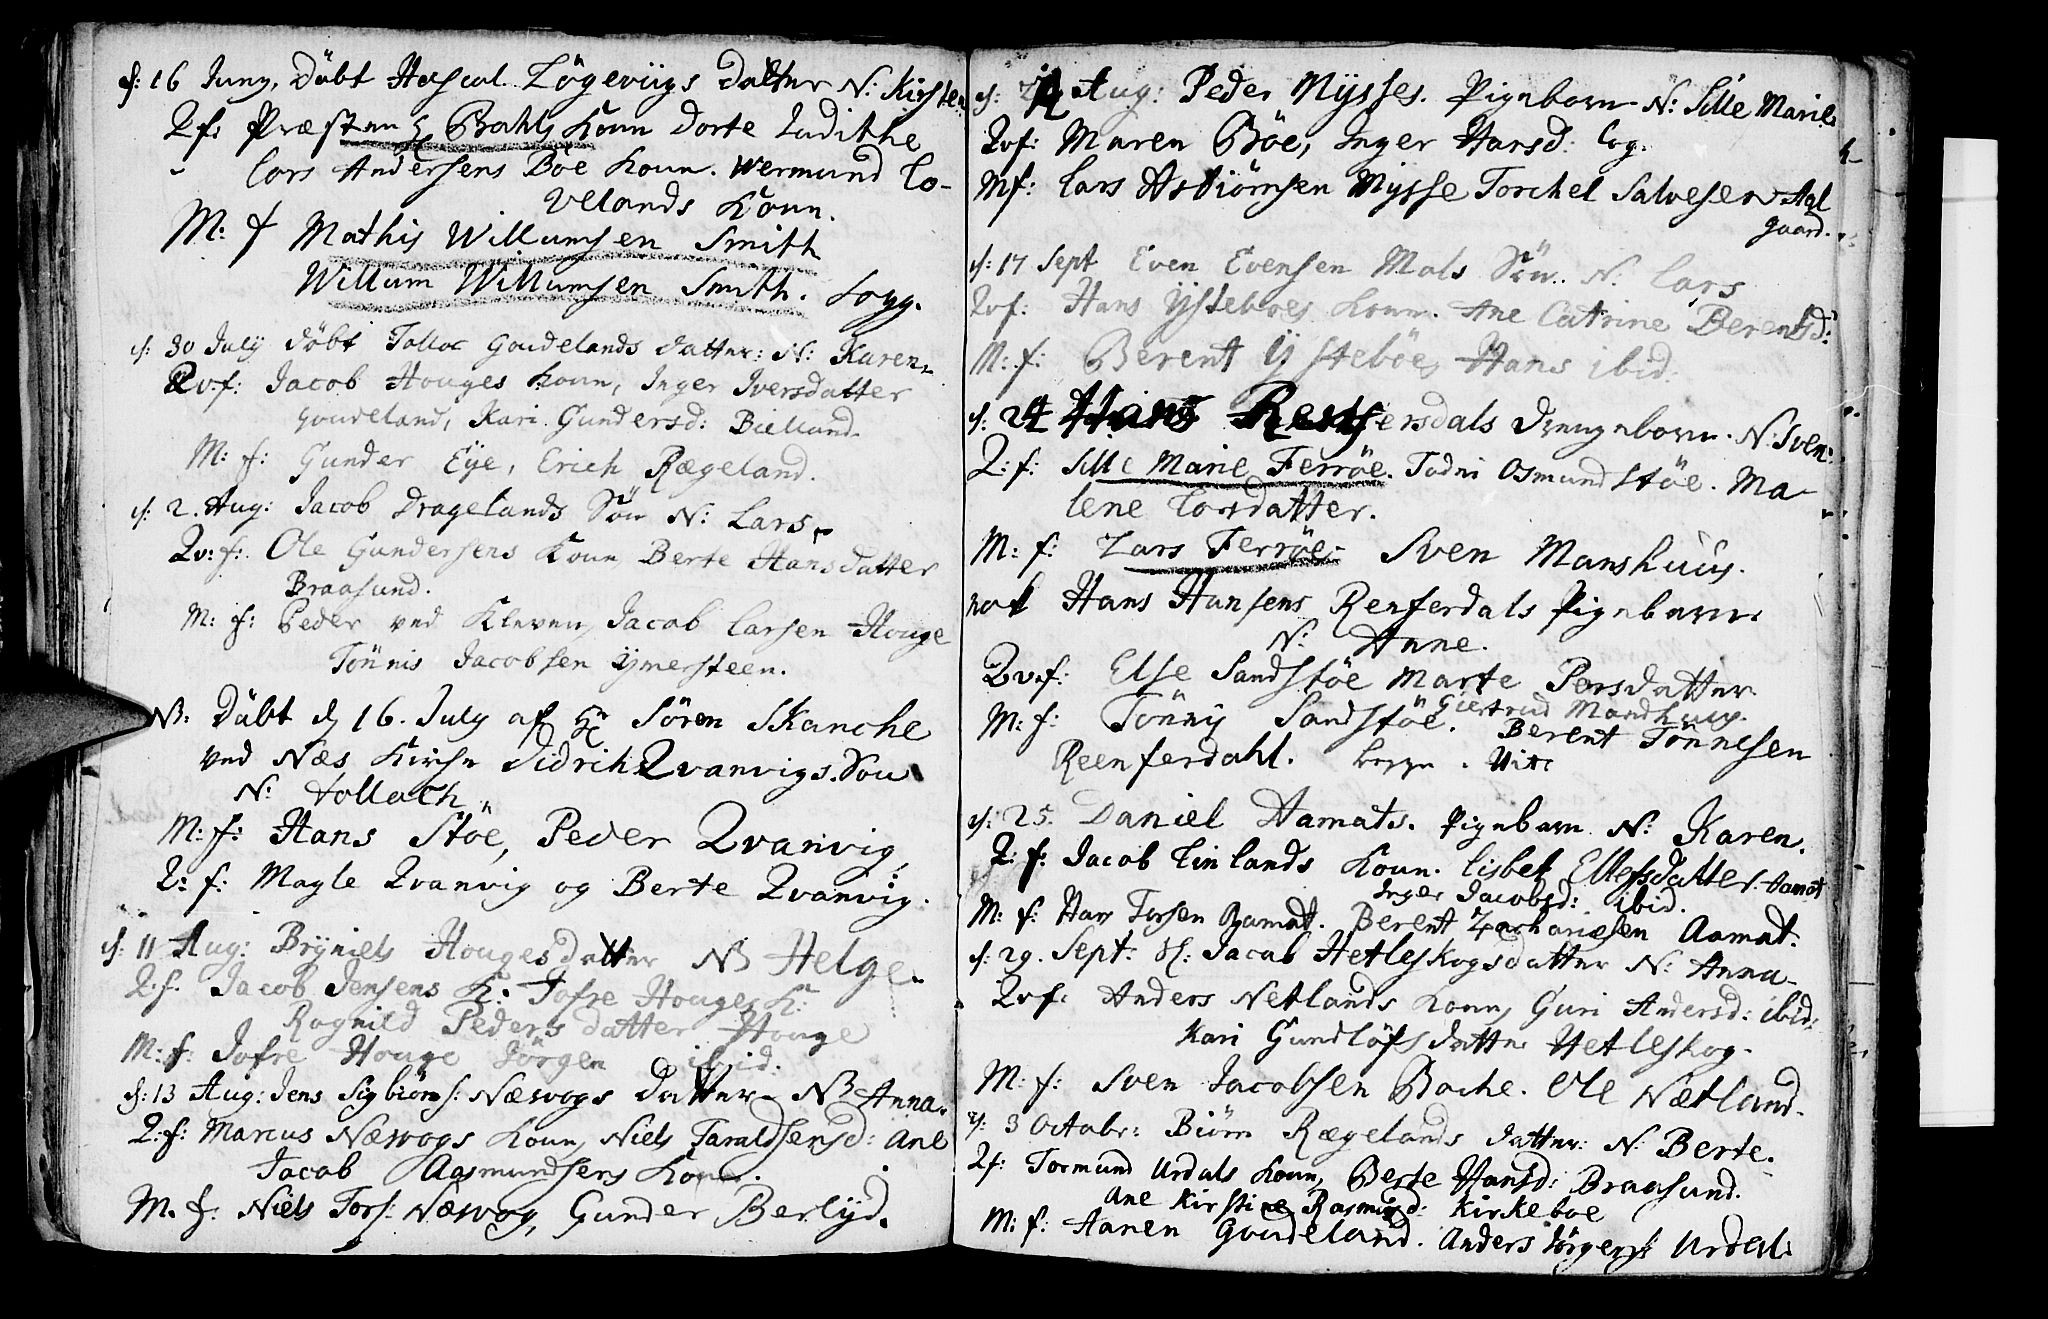 d: 16 Juny, döbt Hascal Lögeviigs datter N: Kirsten
Q f: Præsten Hr Bahls Koun dorte Judithe
Lars Andersens Böe Koun. Wermund Lo-
velands Koun.
M: f Mathis Willumsen Smith
Willum Willumsen Smith. Logg.
d: 30 July döbt Tolloc Goudelands datter: N: Karen.
Qv: f: Jacob Houges Koun, Inger Iversdatter
Goudeland, Kari Gundersd: Bielland.
M: f: Gunder Eÿe, Erich Rægeland.
d: 2. Aug: Jacob Dragelands Sön N: Lars.
Qv: f: Ole Gundersens Koun Berte Hansdatter
Braasund.
M: f: Peder ved Kleven, Jacob Larsen Houge
Tönnis Jacobsen Ymersteen.
NB: Döbt d 16. July af Hr Sören Skanche
ved Næs Kirke Didrich Qvanvigs Sön
N: Tollach
M: f: Hans Stöe, Peder Qvanvig,
Q: f: Magle Qvanvig og Berte Qvanvig.
d: 11 Aug: Brÿniels Houges datter NB Helge.
Q. f. Jacob Jensens K: Jofre Houges K:
Ragnild Peders datter Houge
M: f: Jofre Houge Jörgen ibid.
d: 13 Aug: Jens Sigbiörns: Næsvogs datter NB Anna.
Q: f: Marcus Næsvogs Koun, Niels Taraldsensd: Ane
Jacob Aasmundsens Koun.
M. f. Niels Tors: Næsvog, Gunder Berlÿd.
d: Aug: Peder Mÿsses. Pigebarn N: Sille Marie.
Qvf: Maren Böe, Inger Hansd: Log.
Mf: Lars Asbiörnsen Mÿsse Torchel Salvesen Agl
gaard.
d: 17 Sept Even Evensen Mals Sön. N: Lars
Qvf: Hans Ÿsteboes Koun. Ane Catrine Berentsd:
M: f: Berent Ÿsteböe, Hans ibid.
d. 24 Hans Rensfersdals Drengebarn. N: Sven.
Q: f: Sille Marie Ferröe. Todni Osmundstöe. Ma-
lene Torsdatter.
M: f: Lars Ferröe Sven Manshuus.
not Hans Hansens Renferdals Pigebarn
N: Anne.
Qv.f: Else Sandstöe Marte Persdatter
Giertrud Mandhuus.
M: f: Tönnis Sandstöe. Berent Tönnesen
Reenferdahl.
d: 25. Daniel Aamats. Pigebarn N: Karen.
Q: f: Jacob Linlands Koun. Lisbet Ellefsdatter. Aamot
Inger Jacobsd: ibid.
M: f: Hans Torsen Aamot. Berent Zachariesen Aamat.
d: 29. Sept: Jacob Hetleskogs datter N: Anna.
Qvf: Anders Netlands Koun, Guri Andersd: ibid:
Kari Gundlöfs datter Hetleskog.
M: f: Sven Jacobsen Boche. Ole Nætland.
d: 3 Octobr: Biörn Rægelands datter: N: Berte.
Qf: Tormund Urdals Koun, Berte Hansd: Braasund.
Ane Kirstine Rasmusd: Kirkeboe
M: f: Aanen Goudeland. Anders Jörgens: Urdal.